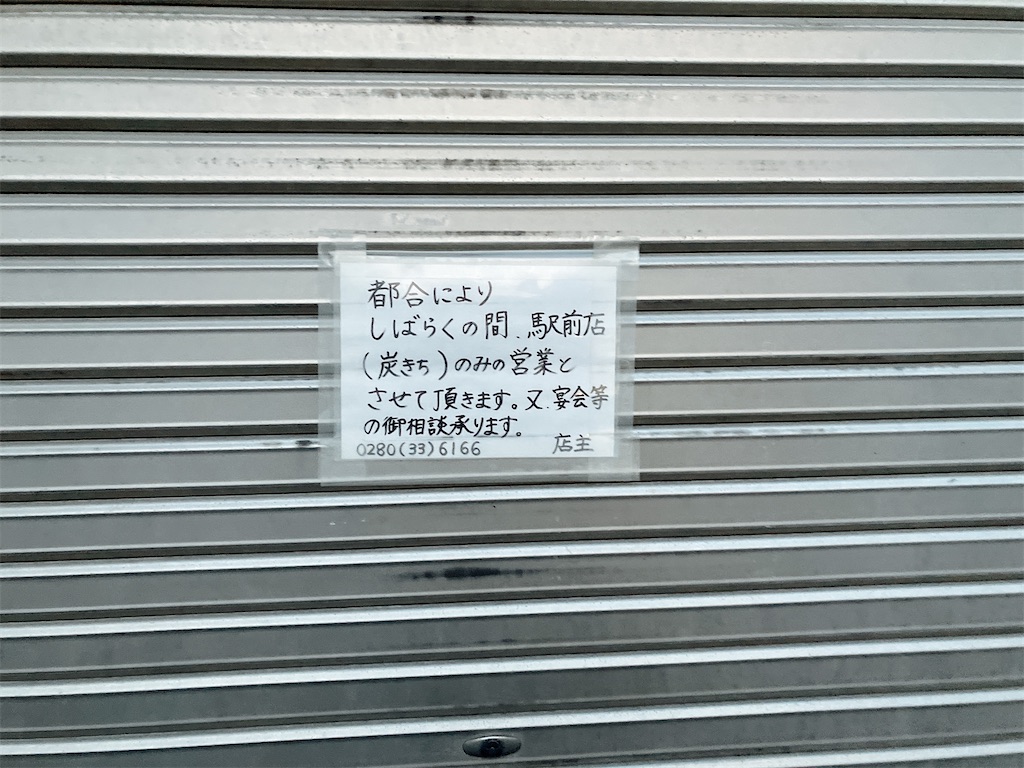 都合により
しばらくの間、駅前店
(炭きち)のみの営業と
させて頂きます。又、宴会等
の御相談承ります。
0280(33)6166 店主